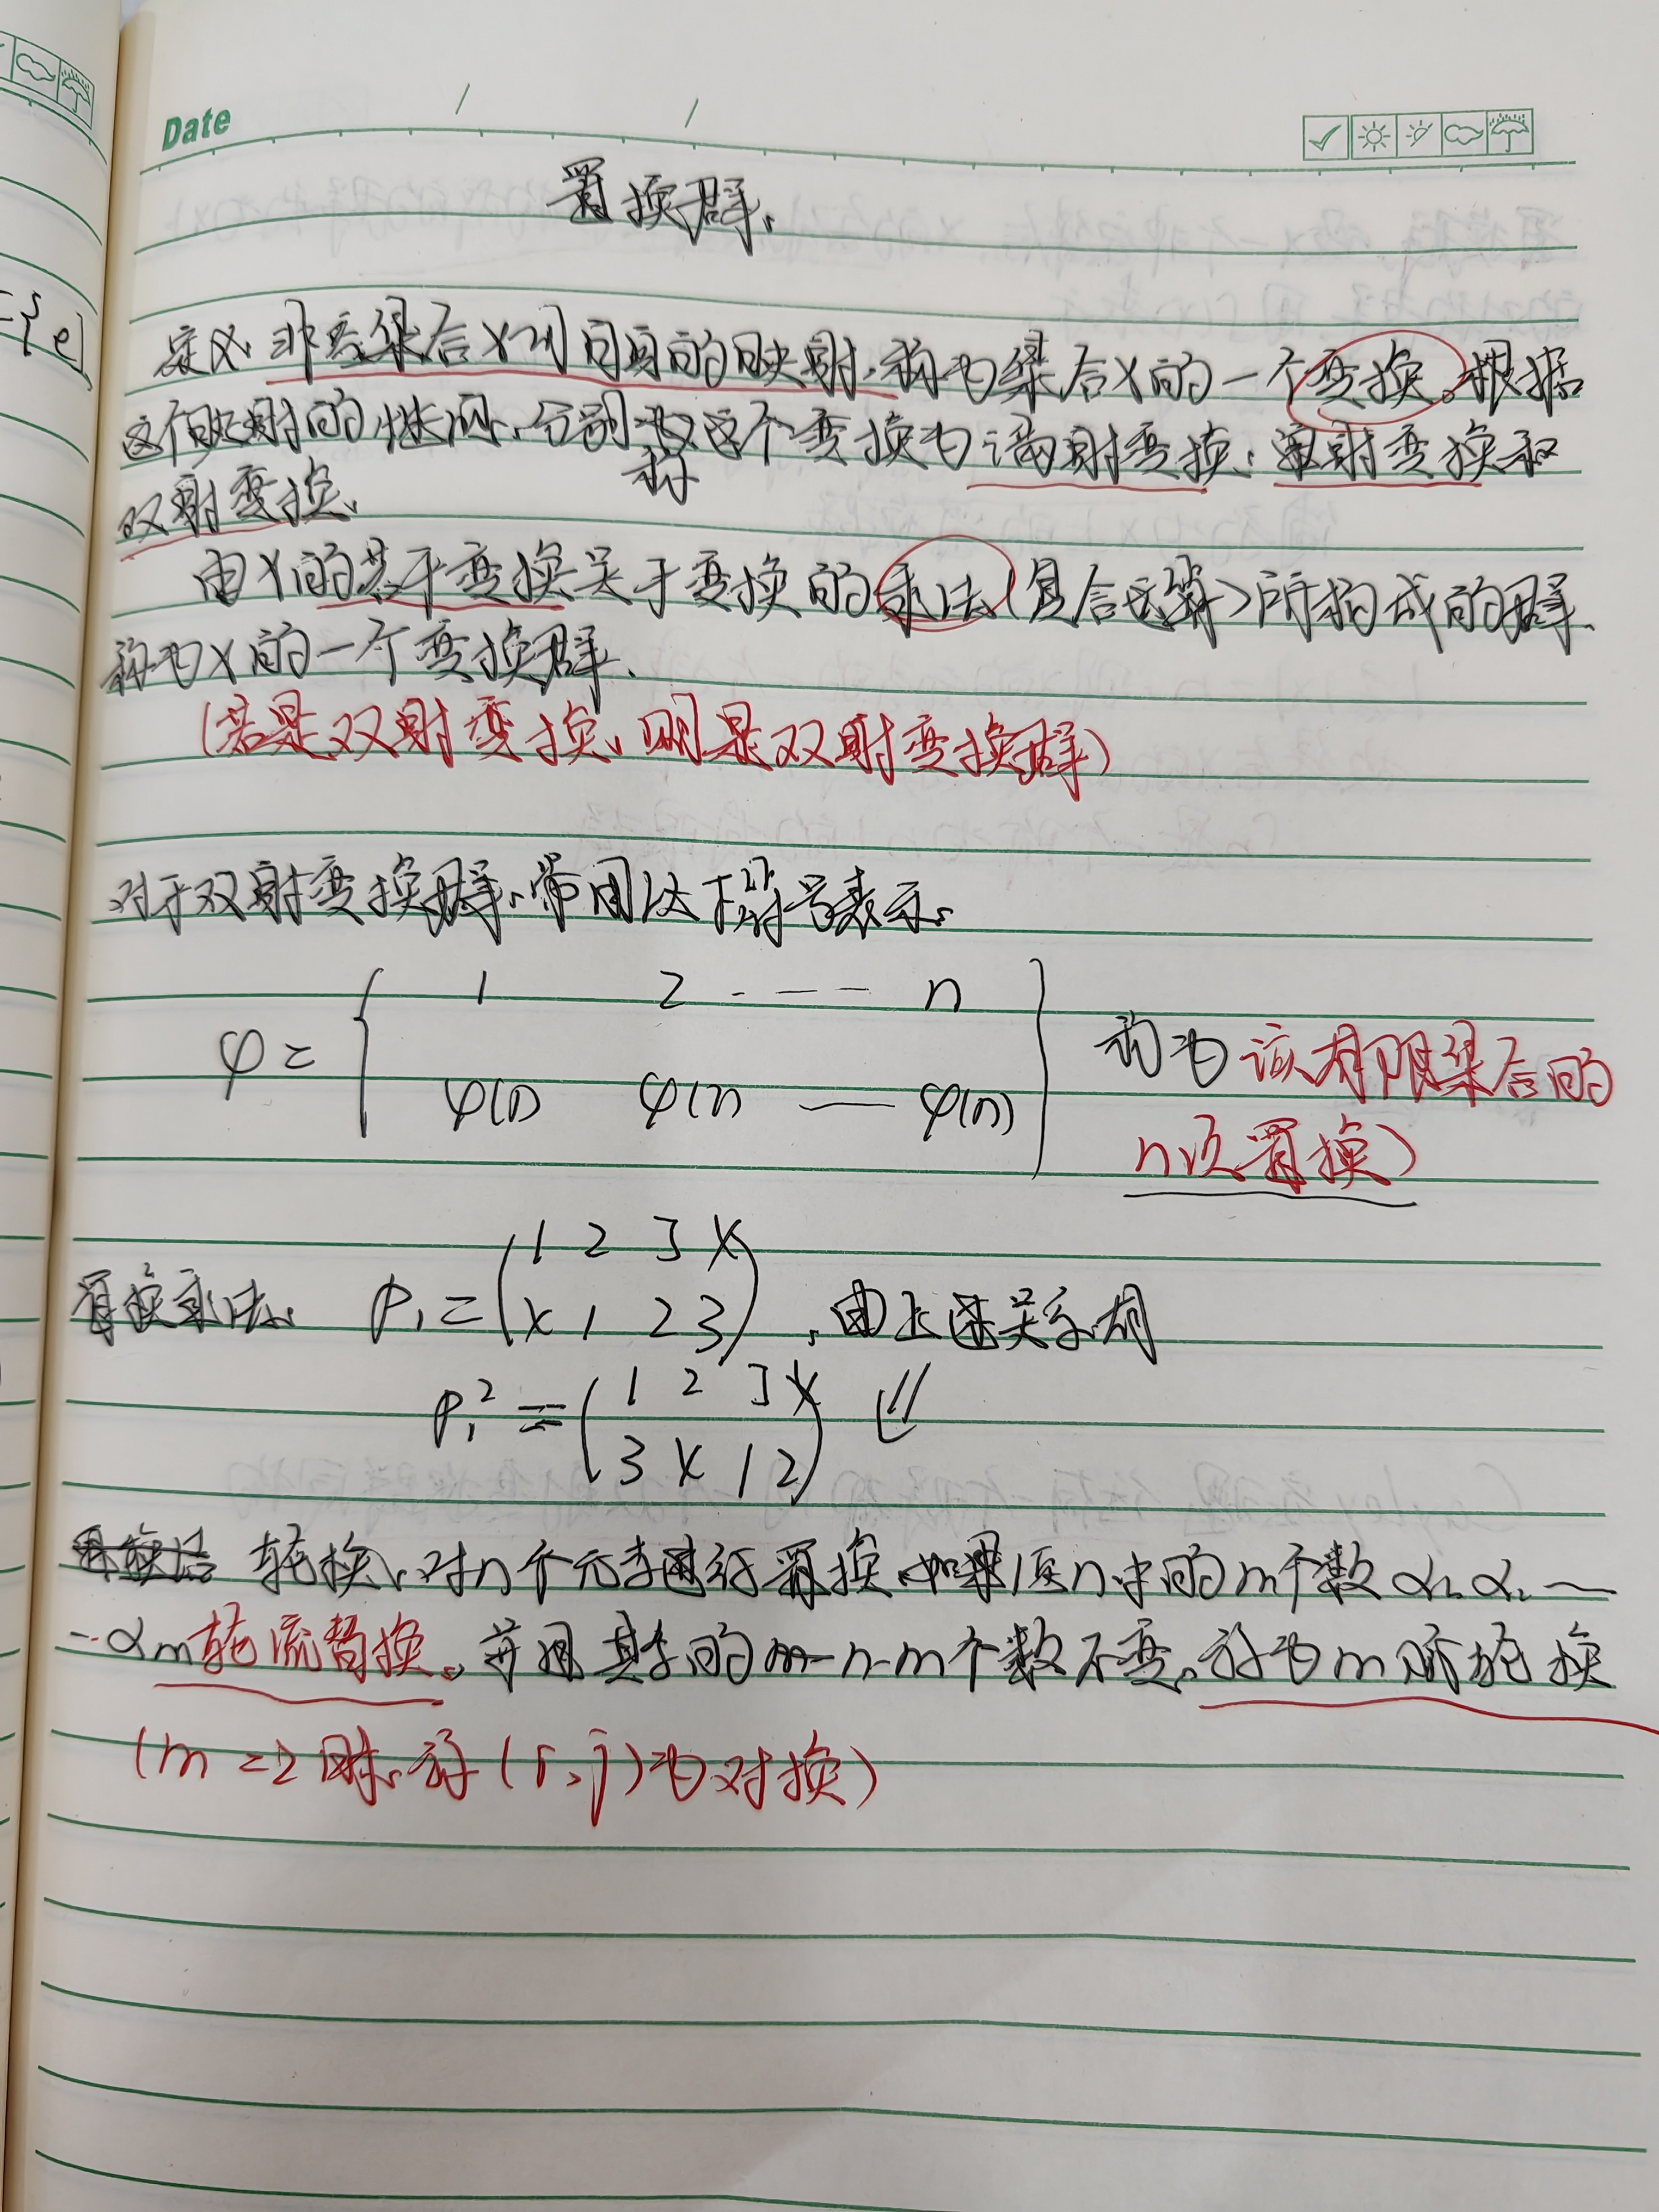 Date / /
置换群.
={e}
定义. 非空集合X到自身的映射,称为集合X的一个变换。根据
这个映射的性质,分别称这个变换为满射变换,单射变换和
双射变换.
由X的若干变换关于变换的乘法(复合运算)所构成的群.
称为X的一个变换群.
(若是双射变换,则是双射变换群)
对于双射变换群,常用以下符号表示.
1 2 ---- n
φ=
φ(1) φ(n) — φ(n)
称为该有限集合的
n次置换)
1 2 3 X
置换乘法. P₁= , 由上述关系有
X 1 2 3
1 2 3 X
P₁²=
3 X 1 2
轮换、对n个元素进行置换,如果 n中的m个数α₁ α₂ —
--αm轮流替换,并且其余的 n-m个数不变.称为m阶轮换
(m=2时,称(i,j)为对换)